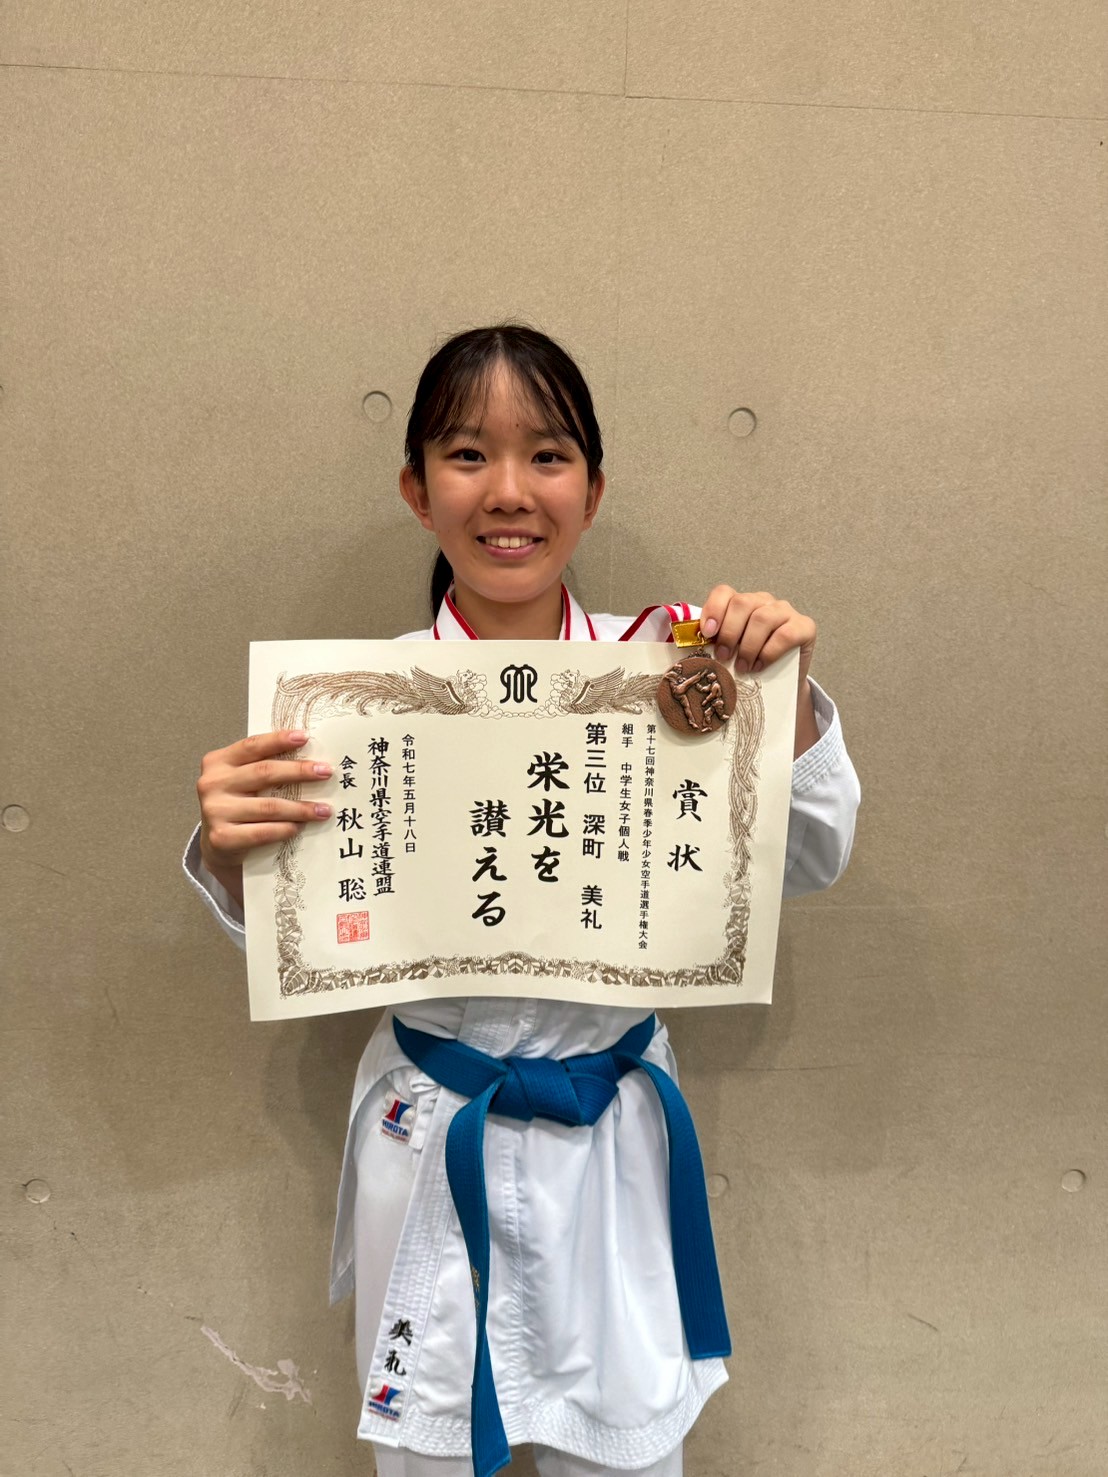 賞状
第十七回神奈川県春季少年少女空手道選手権大会
組手 中学生女子個人戦
第三位 深町 美礼
栄光を
讃える
令和七年五月十八日
神奈川県空手道連盟
会長 秋山 聡
HIROTA
美礼
HIROTA